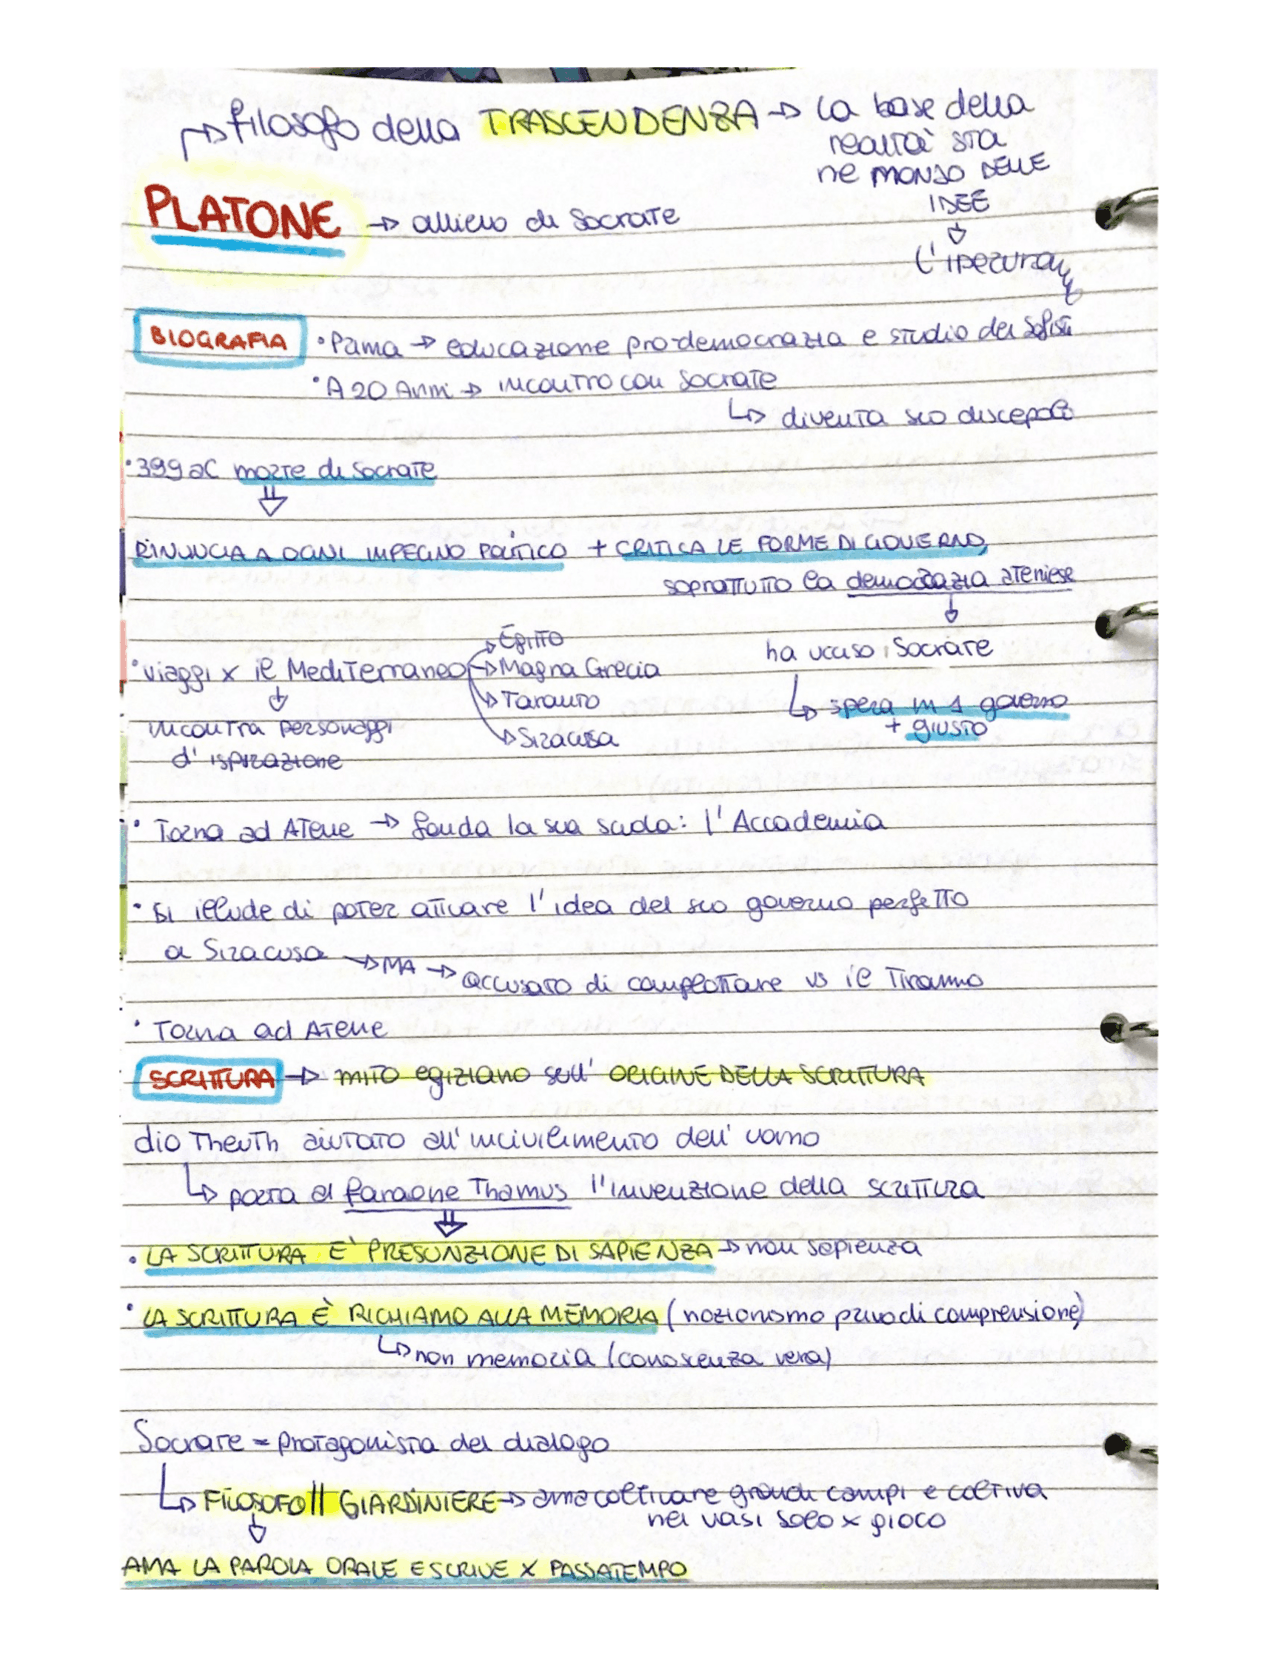 → filosofo della TRASCENDENZA → la base della
realtà sta
ne MONDO DELLE
IDEE
↓
PLATONE → allievo di Socrate
L'iperuranio
BIOGRAFIA • Prima → educazione pro-democrazia e studio dei Sofisti
• A 20 Anni → incontro con Socrate
↳ diventa suo discepolo
• 399 aC morte di Socrate
⇓
RINUNCIA A OGNI IMPEGNO POLITICO + CRITICA LE FORME DI GOVERNO,
soprattutto la democrazia ateniese
↓
ha ucciso Socrate
↳ spera in 1 governo
+ giusto
• viaggi x il Mediterraneo → Egitto
→ Magna Grecia
→ Taranto
→ Siracusa
↓
incontra personaggi
d'ispirazione
• Torna ad Atene → fonda la sua scuola: l'Accademia
• Si illude di poter attuare l'idea del suo governo perfetto
a Siracusa → MA → accusato di complottare vs il Tiranno
• Torna ad Atene
SCRITTURA → mito egiziano sull'ORIGINE DELLA SCRITTURA
dio Theuth aiutato all'incivilimento dell'uomo
↳ porta al faraone Thamus l'invenzione della scrittura
⇓
• LA SCRITTURA E' PRESUNZIONE DI SAPIENZA → non sapienza
• LA SCRITTURA È RICHIAMO ALLA MEMORIA (nozionismo privo di comprensione)
↳ non memoria (conoscenza vera)
Socrate = protagonista del dialogo
↳ FILOSOFO || GIARDINIERE → ama coltivare grandi campi e coltiva
nei vasi solo x gioco
↓
AMA LA PAROLA ORALE E SCRIVE X PASSATEMPO